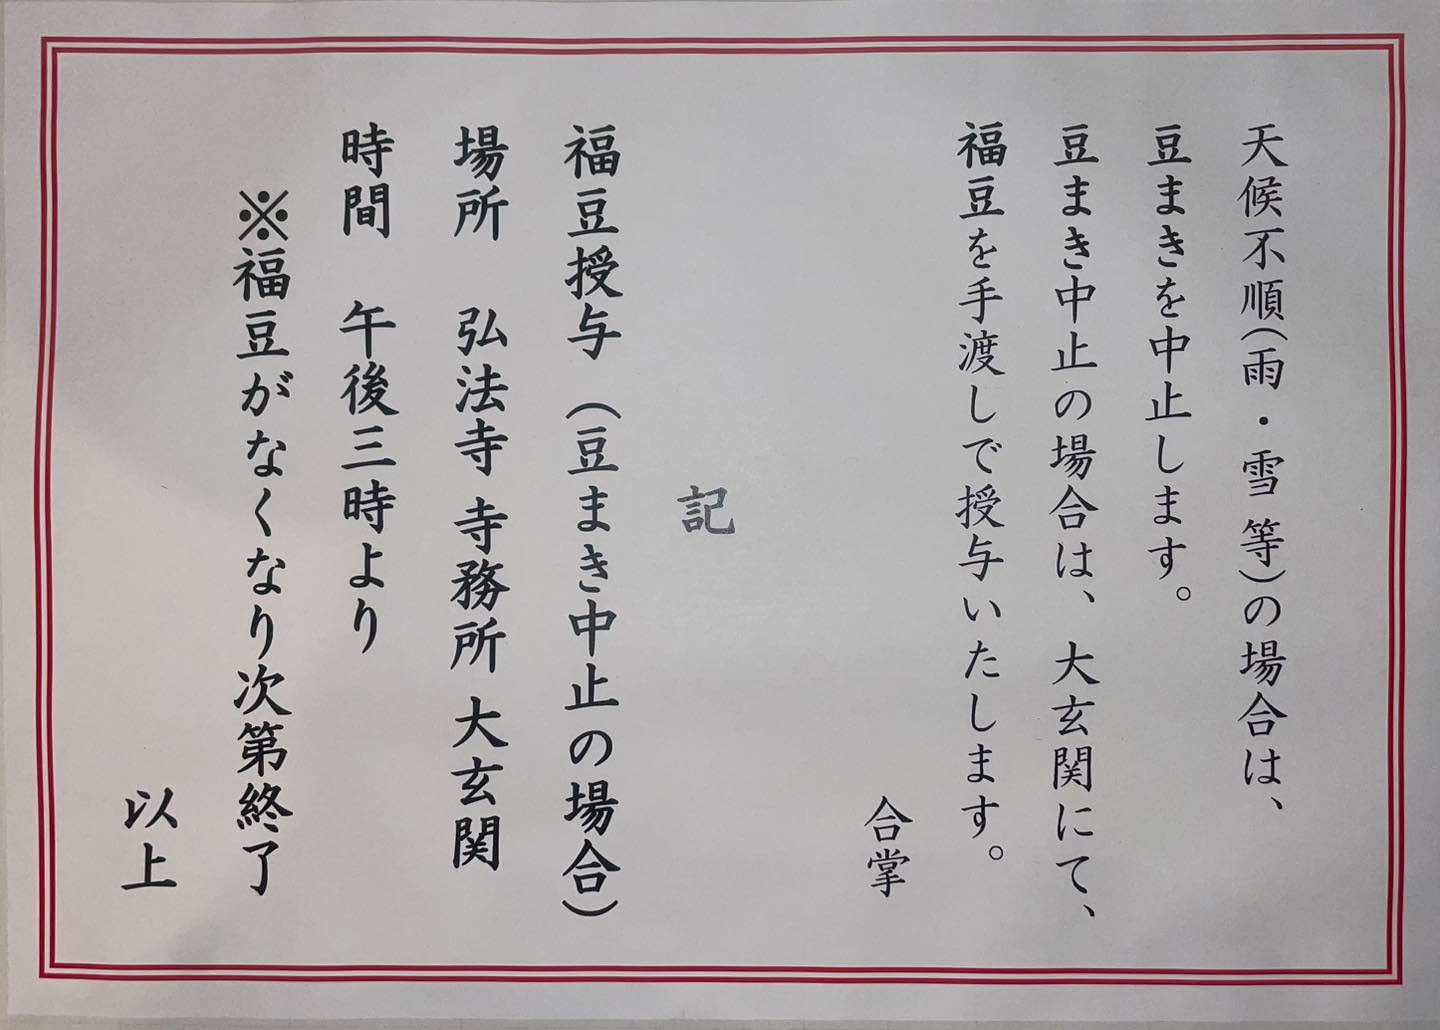 天候不順(雨・雪 等)の場合は、
豆まきを中止します。
豆まき中止の場合は、大玄関にて、
福豆を手渡しで授与いたします。
合掌
記
福豆授与(豆まき中止の場合)
場所 弘法寺 寺務所 大玄関
時間 午後三時より
※福豆がなくなり次第終了
以上